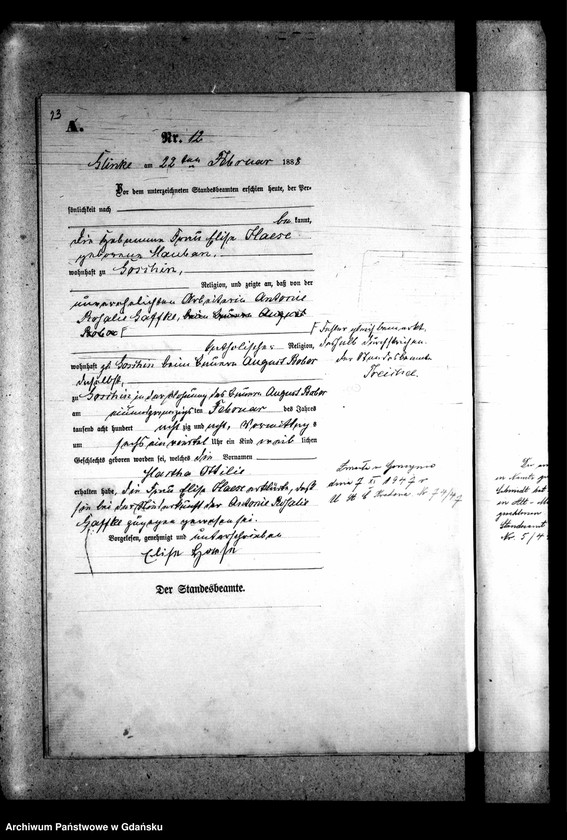 23
A.
Nr. 12
Glinke am 22 ten Februar 1888
Vor dem unterzeichneten Standesbeamten erschien heute, der Per-
sönlichkeit nach
be kannt,
die Hebamme Frau Elise Haese
geborene
wohnhaft zu Goschin,
Religion, und zeigte an, daß von der
unverehelichten Arbeiterin Antonie
Rosalie Gaffke, beim Bauern August
Robor
katholischer Religion,
wohnhaft zu Goschin beim Bauern August Robor
daselbst,
zu Goschin in der Wohnung des Bauern August Robor
am einundzwanzigsten Februar des Jahres
tausend acht hundert acht zig und acht, Vormittags
um sechs ein viertel Uhr ein Kind weib lichen
Geschlechts geboren worden sei, welches den Vornamen
Martha Ottilie
erhalten habe, die Frau Elise Haese erklärte, daß
sie bei der Niederkunft der Antonie Rosalie
Gaffke zugegen gewesen sei.
Vorgelesen, genehmigt und unterschrieben
Elise
Der Standesbeamte.
deshalb durchstrichen.
der Standesbeamte
dnia 7 XI 1947 r
Nr 74/47
Schmidt
Standesamt
Nr. 5/4
Archiwum Państwowe w Gdańsku